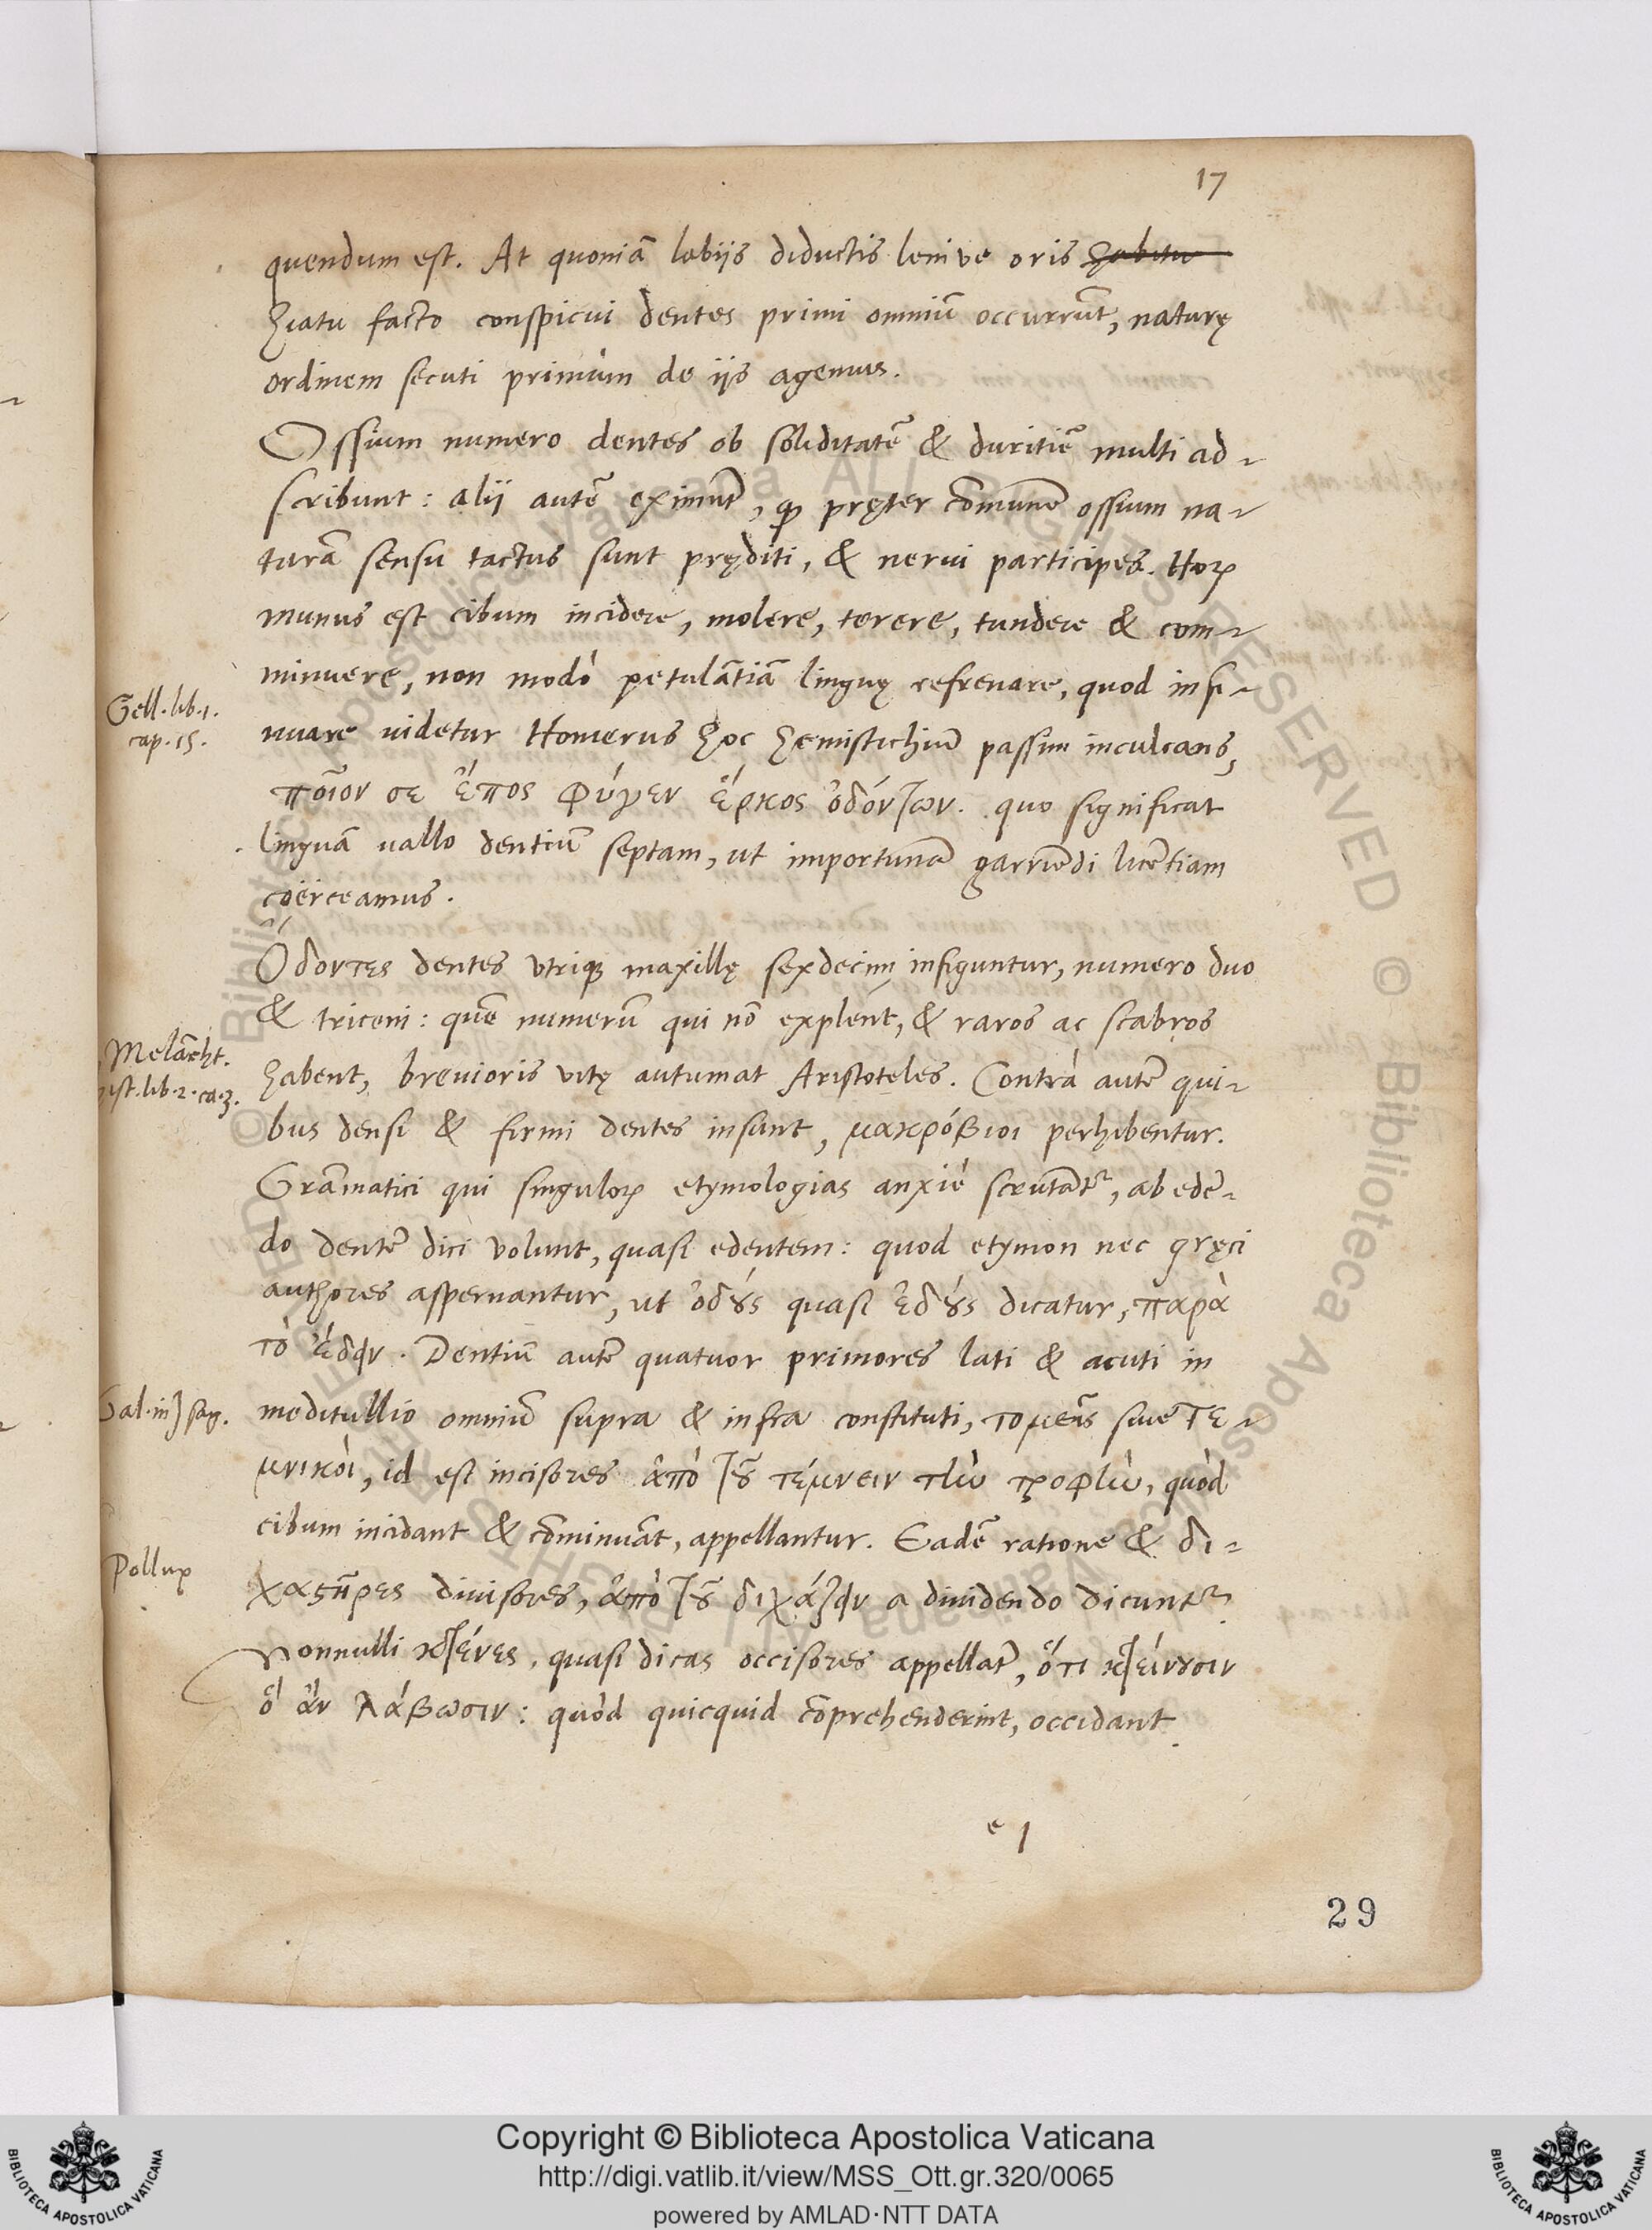 17
quendum est. At quoniã labijs diductis leniue oris habitu
hiatu facto conspicui dentes primi omniũ occurrũt, naturę
ordinem secuti primùm de ijs agemus.
Ossium numero dentes ob soliditatẽ & duritiẽ multi ad-
scribunt: alii autẽ eximũt, ꝙ pręter cõmunẽ ossium na-
turã sensu tactus sunt pręditi, & nerui participes. Horꝝ
munus est cibum incidere, molere, terere, tundere & com-
minuere, non modò petulãtiã linguę refrenare, quod insi-
Gell. lib. 1.
cap. 15.
nuare uidetur Homerus hoc hemistichiũ passim inculcans,
ποῖον σε ἔπος φύγεν ἕρκος ὀδόντων. quo significat
linguã uallo dentiũ septam, ut importunã garriẽdi licẽtiam
coërceamus.
Ὀδοντες dentes vtriqꝫ maxillę sexdecim infiguntur, numero duo
& triceni: quẽ numerũ qui nõ explent, & raros ac scabros
Melãcht.
hist. lib. 2. ca. 3.
habent, breuioris vitę autumat Aristoteles. Contrà autẽ qui-
bus densi & firmi dentes insunt, μακρόβιοι perhibentur.
Grãmatici qui singulorꝝ etymologias anxiè scrutãtur, ab edẽ-
do dentẽ dici volunt, quasi edentem: quod etymon nec gręci
authores aspernantur, ut ὀδȣ́ς quasi ἐδȣ́ς dicatur, παρὰ
τὸ ἔδειν. Dentiũ autẽ quatuor primores lati & acuti in
Gal. in Isag.
meditullio omniũ supra & infra constituti, τομεῖς siue τε-
μνικοὶ, id est incisores ἀπὸ τȣ͂ τέμνειν τὼ τροφὼ, quòd
cibum incidant & cõminuãt, appellantur. Eadẽ ratione & δι-
Pollux
χαϛῆρες diuisores, ἀπὸ τȣ͂ διχάζειν a diuidendo dicuntur.
Nonnulli κτένες, quasi dicas occisores appellãt, ὅτι κτείνȣσιν
ὃ ἂν λάβωσιν: quòd quicquid cõprehenderint, occidant.
e 1
29
Copyright © Biblioteca Apostolica Vaticana
http://digi.vatlib.it/view/MSS_Ott.gr.320/0065
powered by AMLAD·NTT DATA
BIBLIOTECA APOSTOLICA VATICANA
BIBLIOTECA APOSTOLICA VATICANA